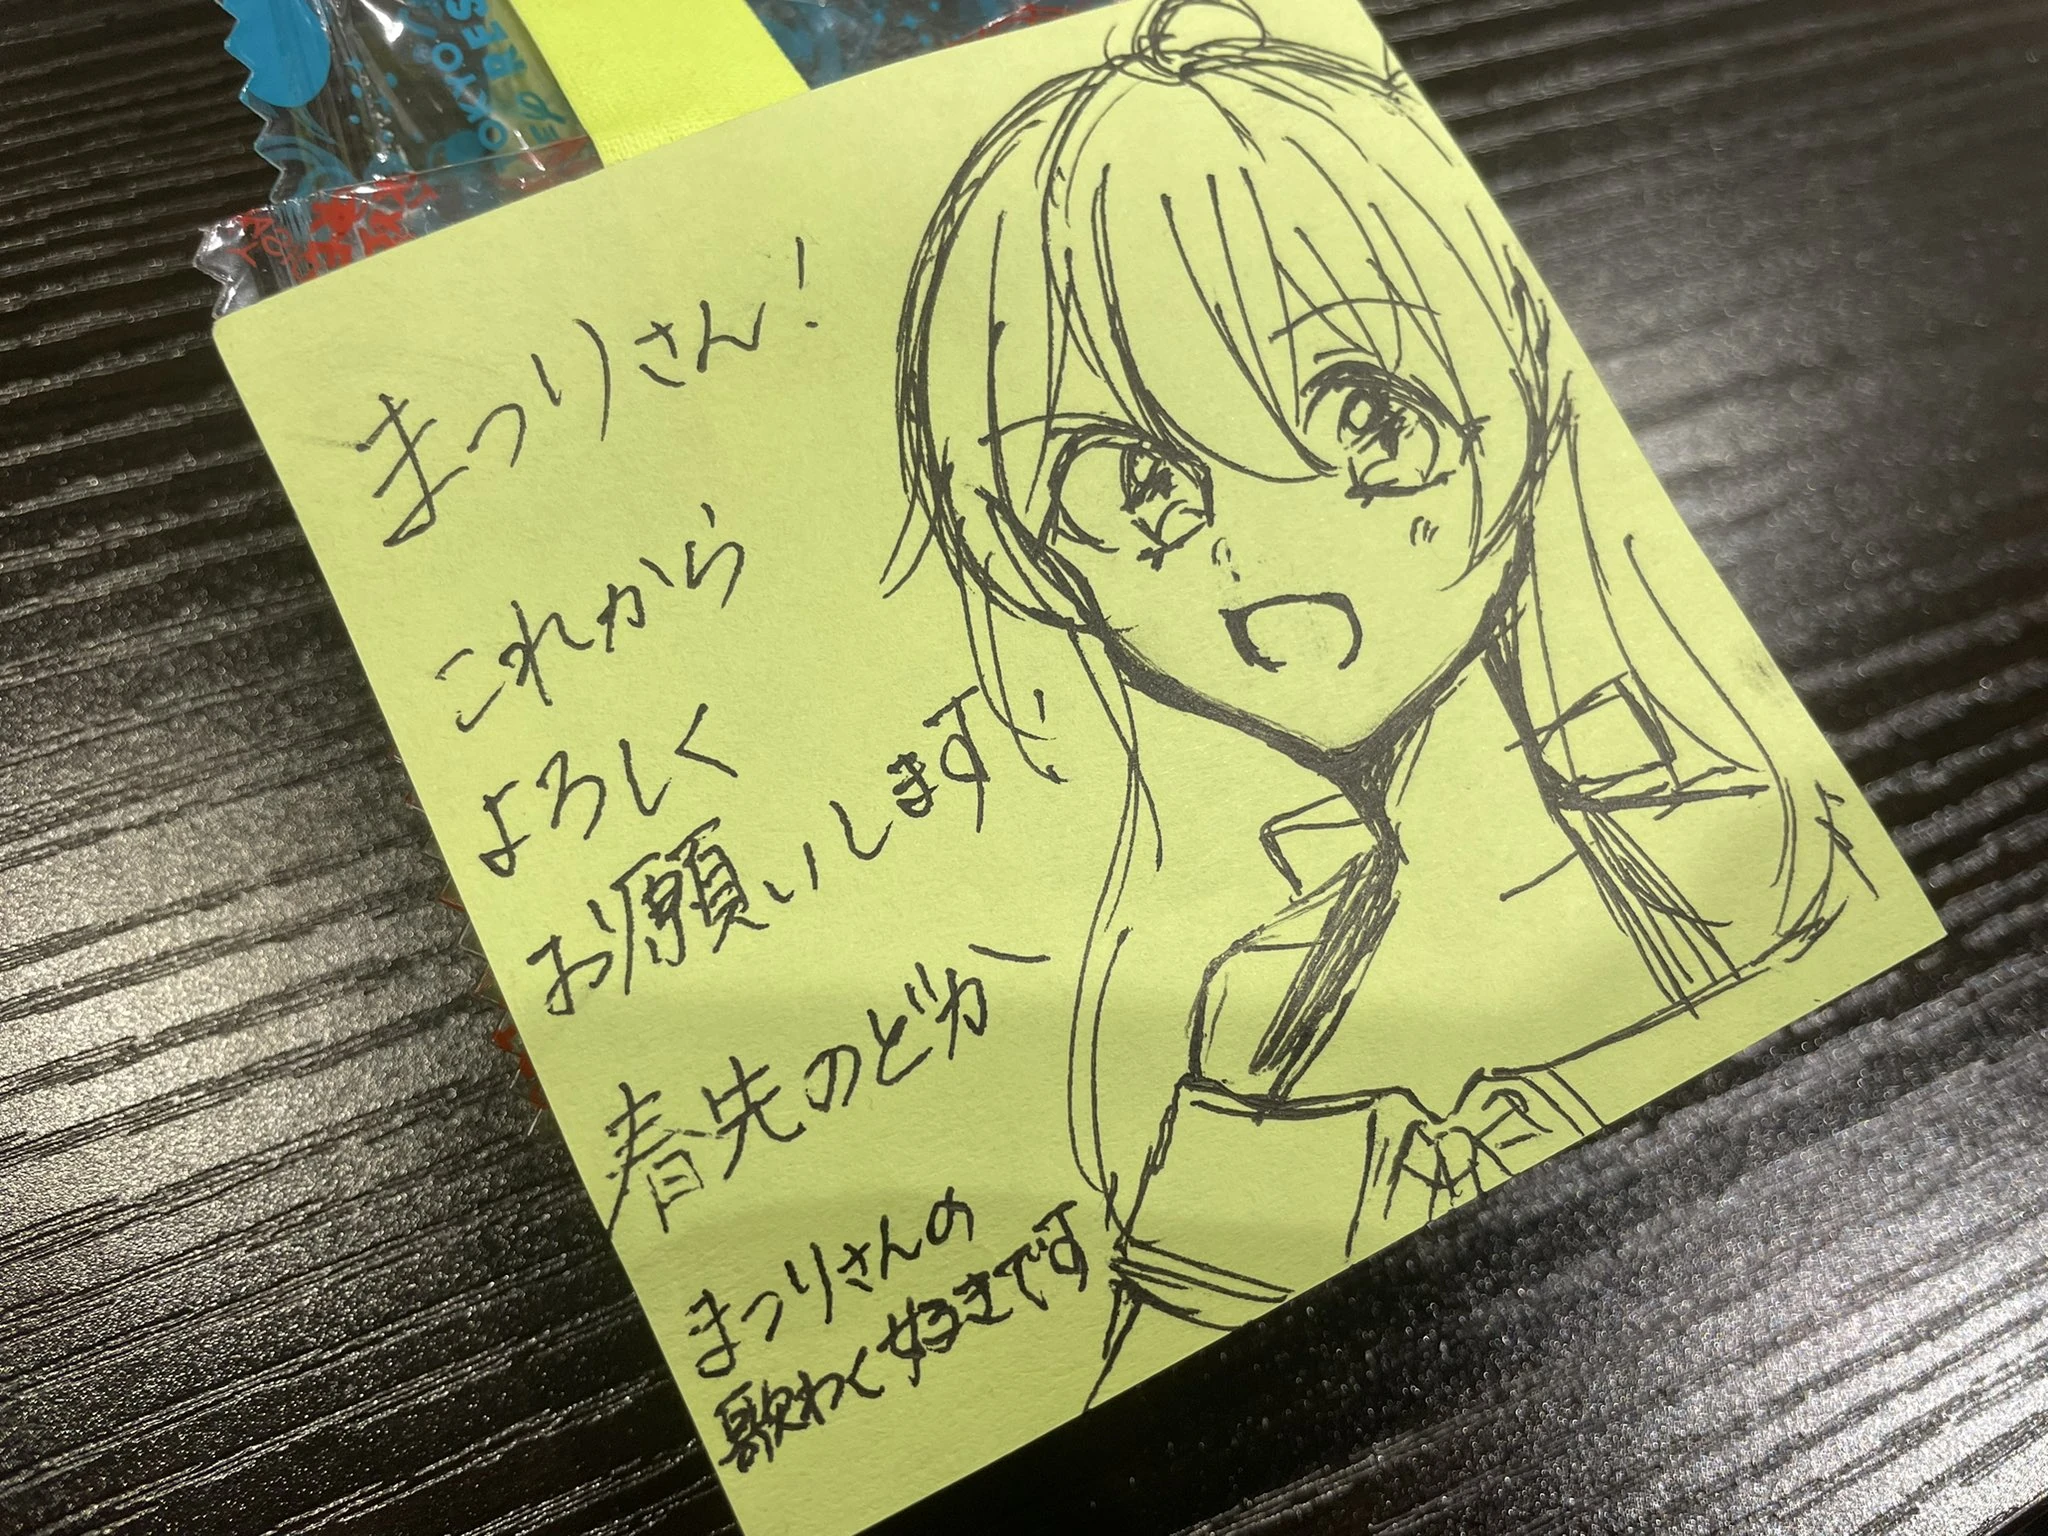 TOKYO
RES
まつりさん!
これから
よろしく
お願いします
春先のどかー
まつりさんの
歌わく好きです